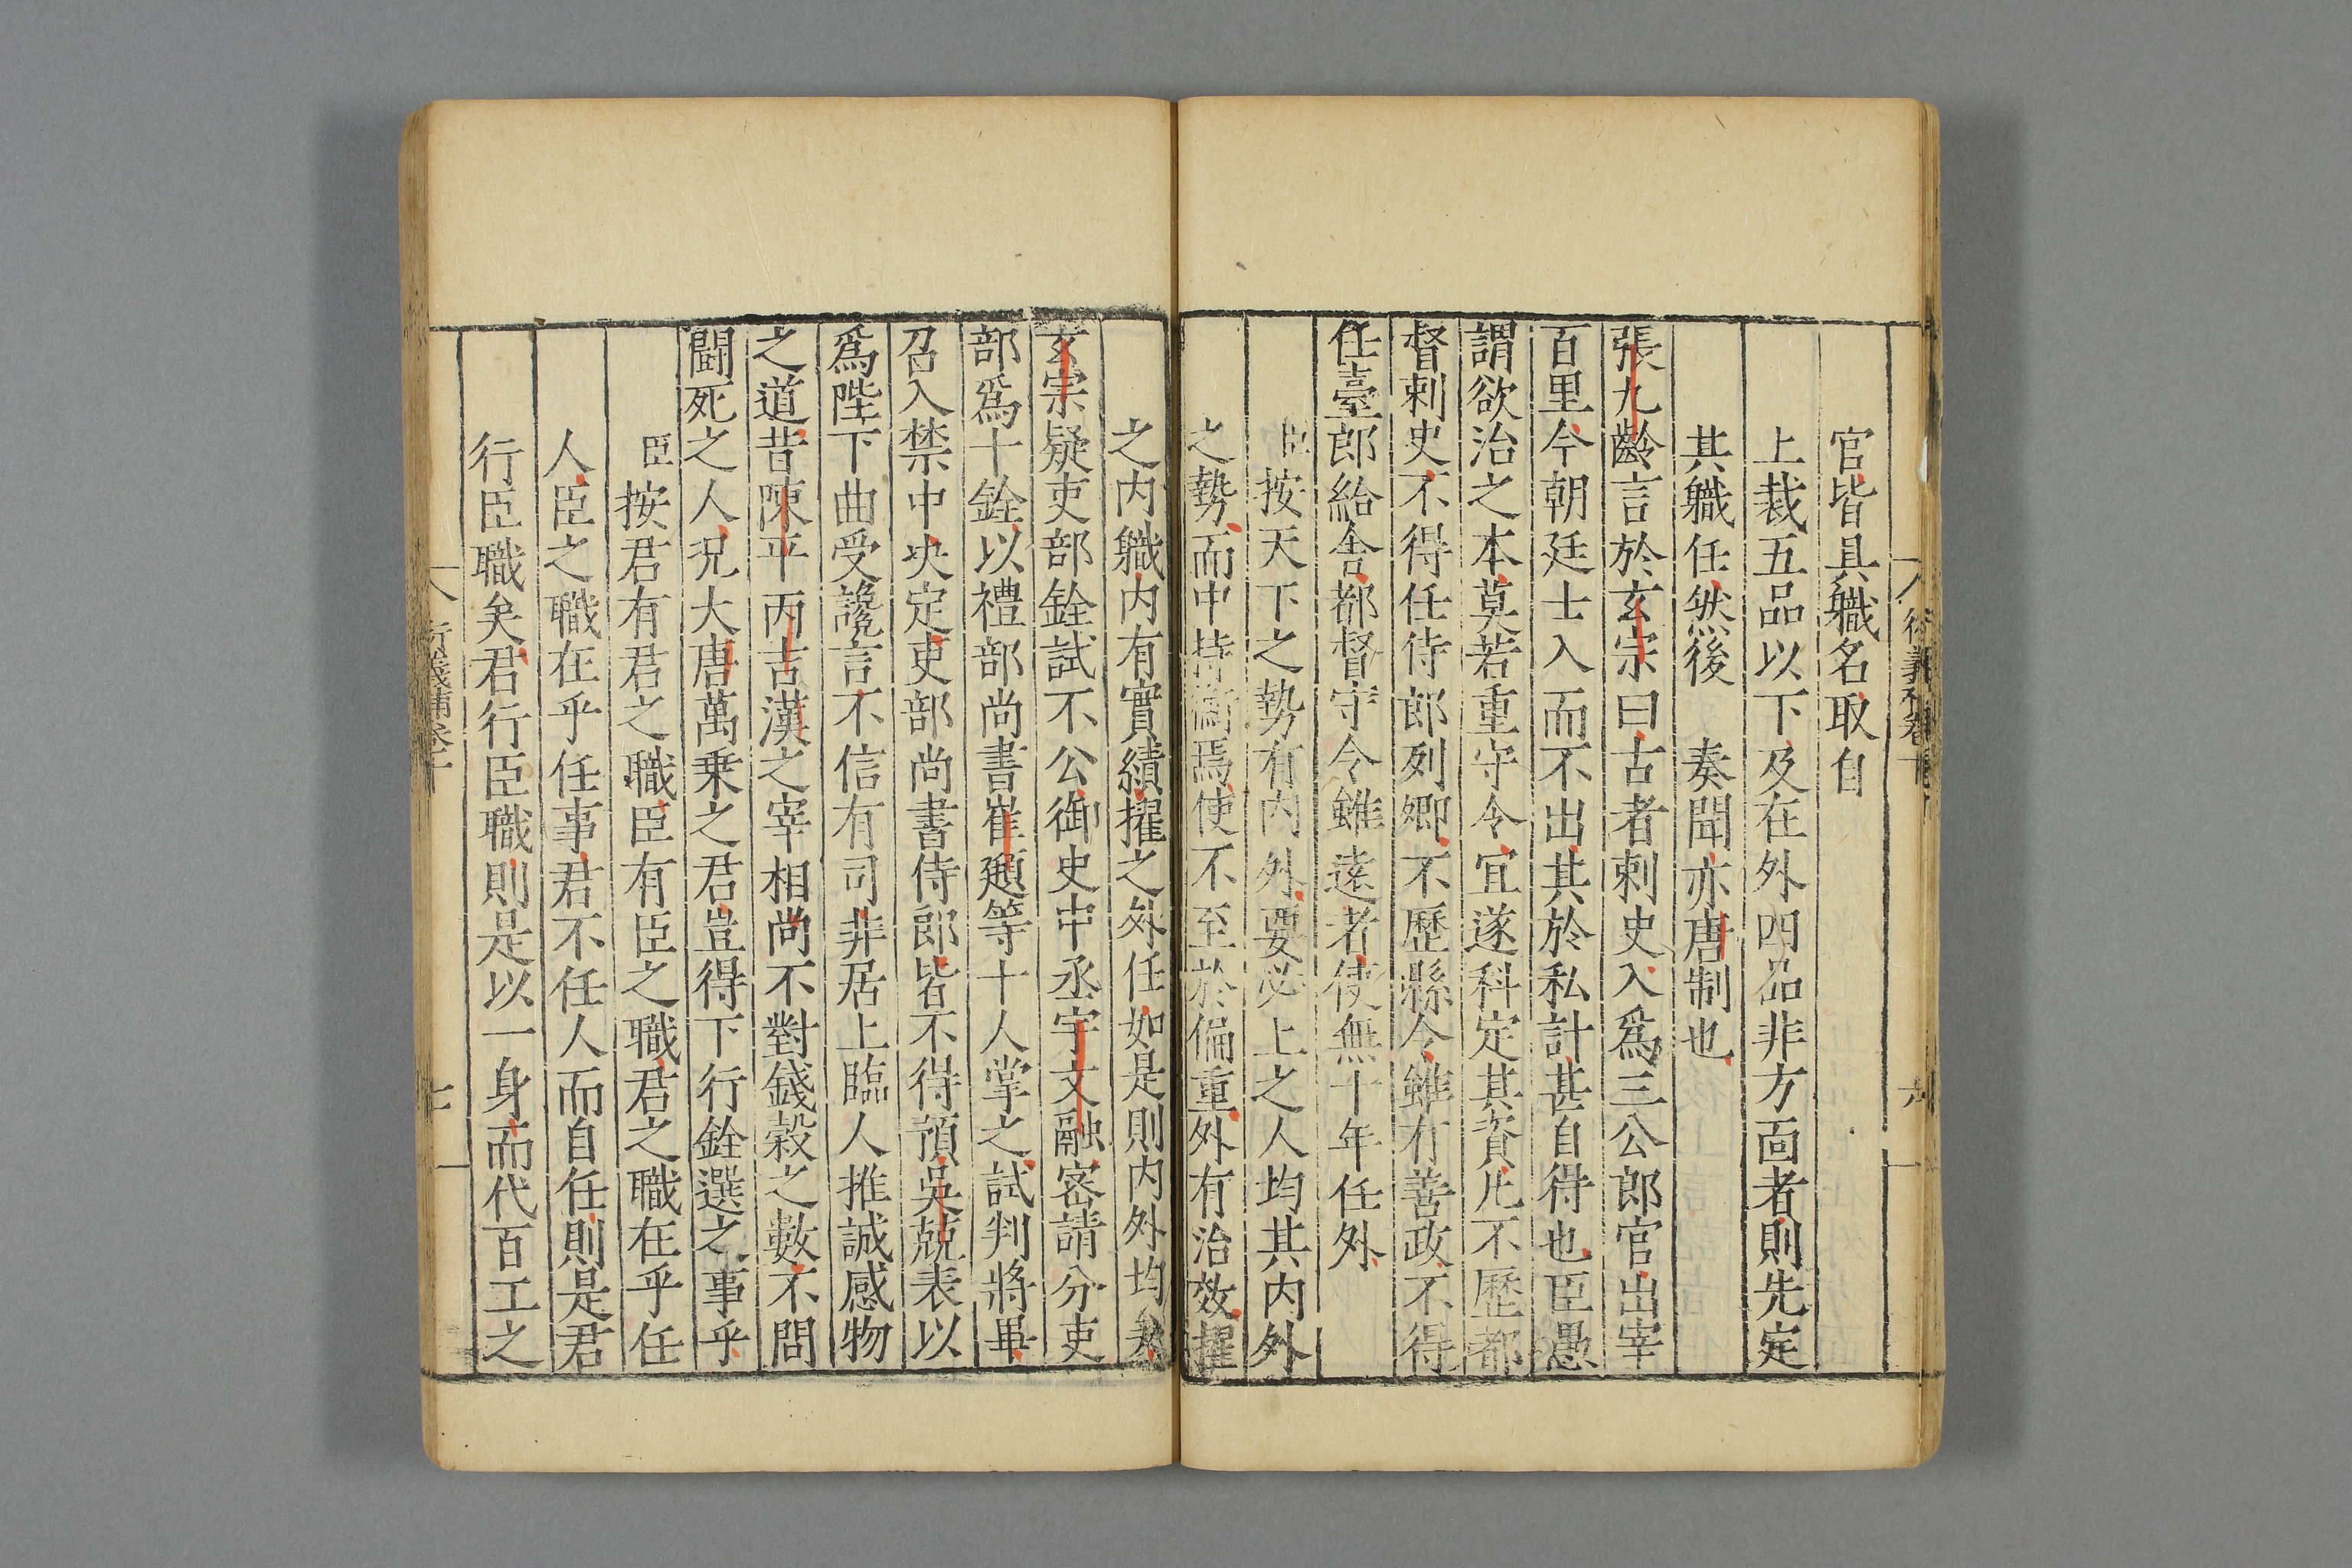 官皆具職名取自
上裁五品以下及在外四品非方面者則先定
其職任然後　奏聞亦唐制也
張九齡言於玄宗曰古者刺史入爲三公郎官出宰
百里今朝廷士入而不出其於私計甚自得也臣愚
謂欲治之本莫若重守令宜遂科定其資凡不歷都
督刺史不得任侍郎列卿不歷縣令雖有善政不得
任臺郎給舍都督守令雖遠者使無十年任外
臣按天下之勢有内外要必上之人均其内外
之勢而中持衡焉使不至於偏重外有治效擢
之内職内有實績擢之外任如是則内外均矣
玄宗疑吏部銓試不公御史中丞宇文融密請分吏
部爲十銓以禮部尚書崔頲等十人掌之試判將畢
召入禁中决定吏部尚書侍郎皆不得預吳兢表以
爲陛下曲受讒言不信有司非居上臨人推誠感物
之道昔陳平丙吉漢之宰相尚不對錢穀之數不問
鬬死之人况大唐萬乗之君豈得下行銓選之事乎
臣按君有君之職臣有臣之職君之職在乎任
人臣之職在乎任事君不任人而自任則是君
行臣職矣君行臣職則是以一身而代百工之